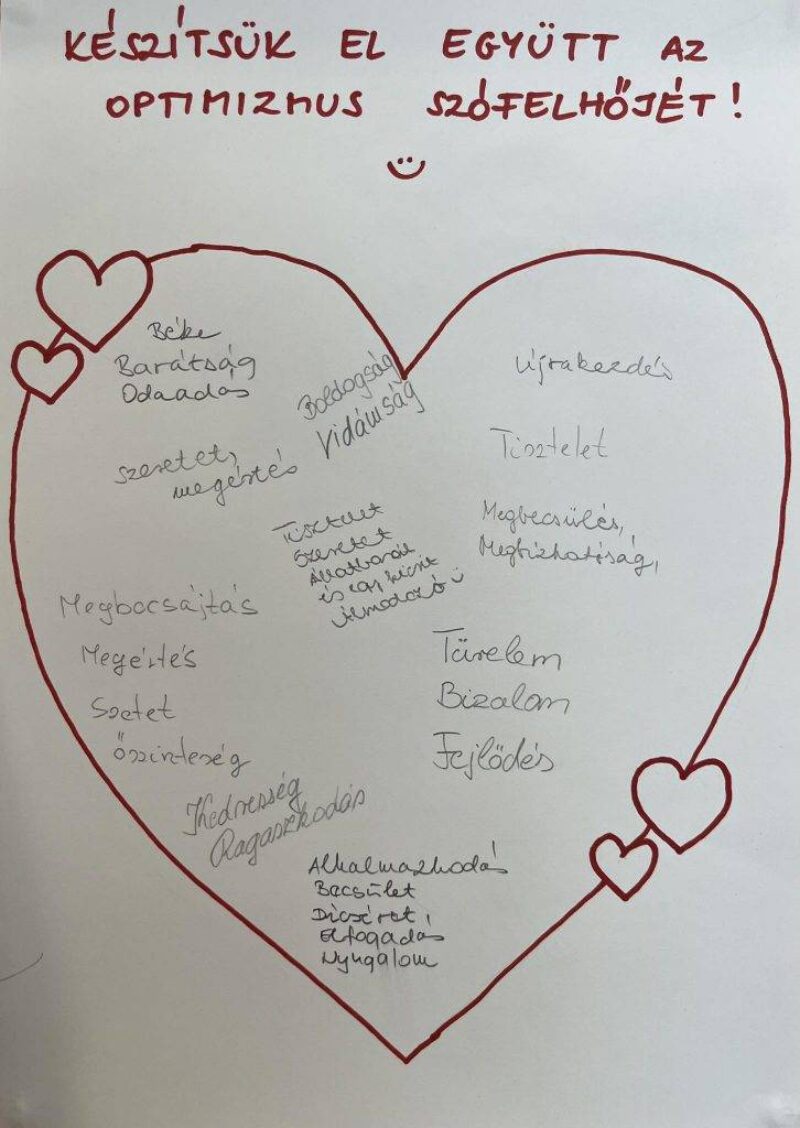 KÉSZÍTSÜK EL EGYÜTT AZ
OPTIMIZMUS SZÓFELHŐJÉT!
Béke
Barátság
Odaadás
szeretet,
megértés
Boldogság
Vidámság
Újrakezdés
Tisztelet
Megbecsülés,
Megbízhatóság,
Tisztelet
Szeretet
és egy kicsit
álmodozó
Megbocsájtás
Megértés
Szetet
Őszinteség
Türelem
Bizalom
Fejlődés
Kedvesség
Ragaszkodás
Alkalmazkodás
Becsület
Dicséret,
Elfogadás
Nyugalom